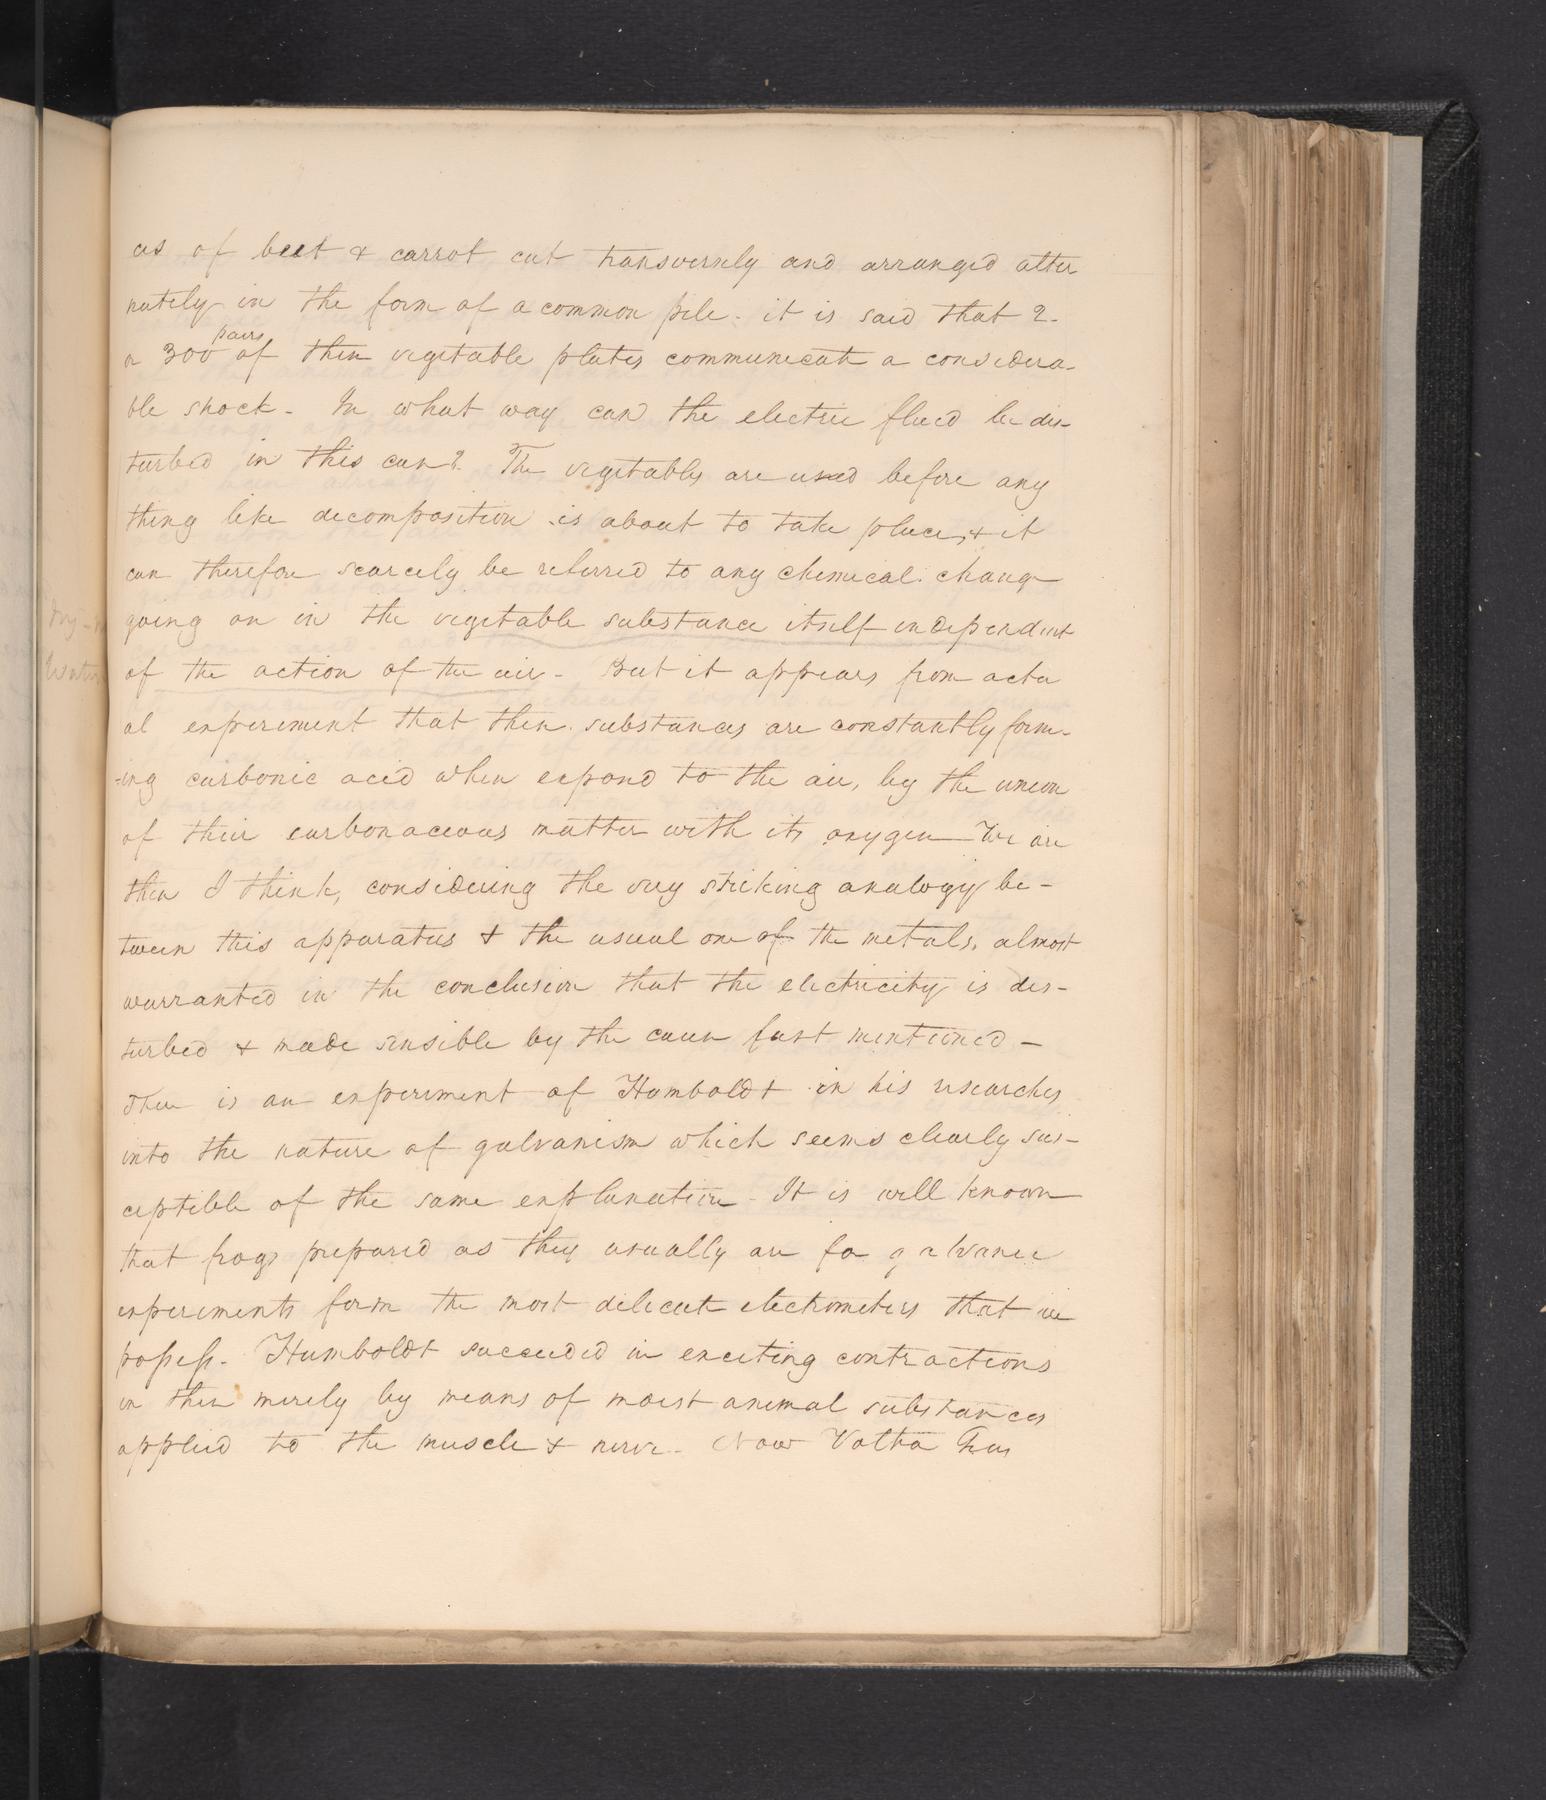 as of beet & carrot cut transversely and arranged alter
nately in the form of a common pile. it is said that 2-
pairs
or 300 of these vegetable plates communicate a considera-
ble shock - In what way can the electric fluid be dis-
turbed in this case? The vegetables are used before any
thing like decomposition is about to take place, & it
can therefore scarcely be referred to any chemical change
going on in the vegetable substance itself independent
of the action of the air - But it appears from actu
al experiment that these substances are constantly form-
-ing carbonic acid when exposed to the air, by the union
of their carbonaceous matter with its oxygen - We are
then I think, considering the very striking analogy be-
tween this apparatus & the usual one of the metals, almost
warranted in the conclusion that the electricity is dis-
turbed & made sensible by the cause just mentioned -
There is an experiment of Humboldt in his researches
into the nature of galvanism which seems clearly sus-
ceptible of the same explanation - It is well known
that frogs prepared as they usually are for galvanic
experiments form the most delicate electrometers that we
possess. Humboldt succeeded in exciting contractions
in them merely by means of moist animal substances
applied to the muscle & nerve - Now Volta has